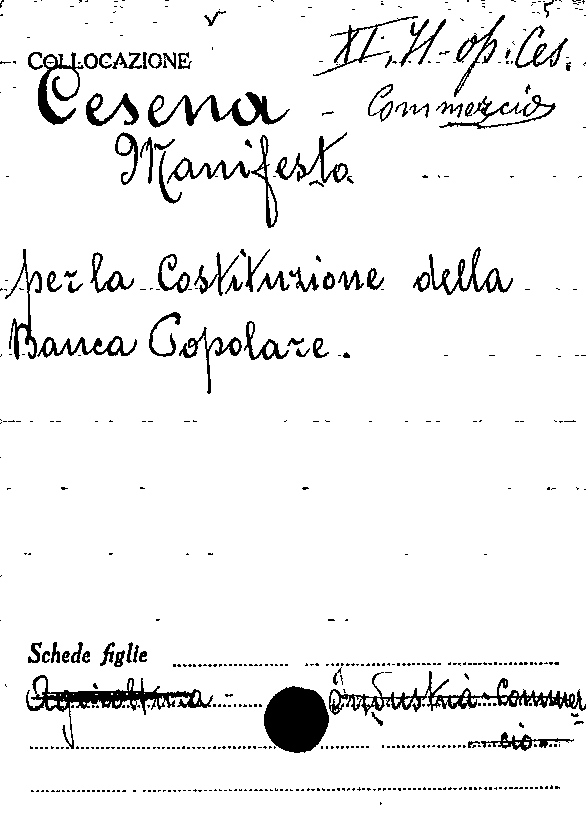 COLLOCAZIONE XI, H- op. Ces.
Cesena - Commercio
Manifesto
per la Costituzione della
Banca Popolare.
Schede figlie
Agricoltura - Industria - Commer
cio -